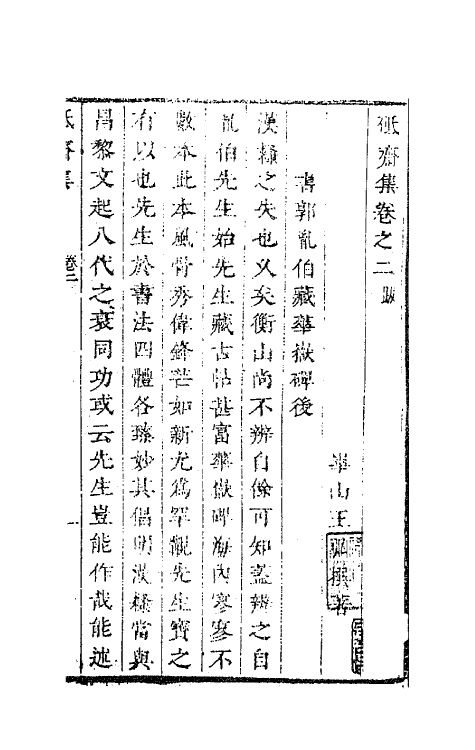 砥齋集卷之二 跋
華山王弘撰著
書郭胤伯藏華嶽碑後
漢隸之失也久矣衡山尚不辨自餘可知蓋辨之自
胤伯先生始先生藏古帖甚富華嶽碑海內寥寥不
數本此本風骨秀偉鋒芒如新尤為罕觀先生寶之
有以也先生於書法四體各臻妙其倡明漢隸當與
昌黎文起八代之衰同功或云先生豈能作哉能述
砥齋集 卷二 一